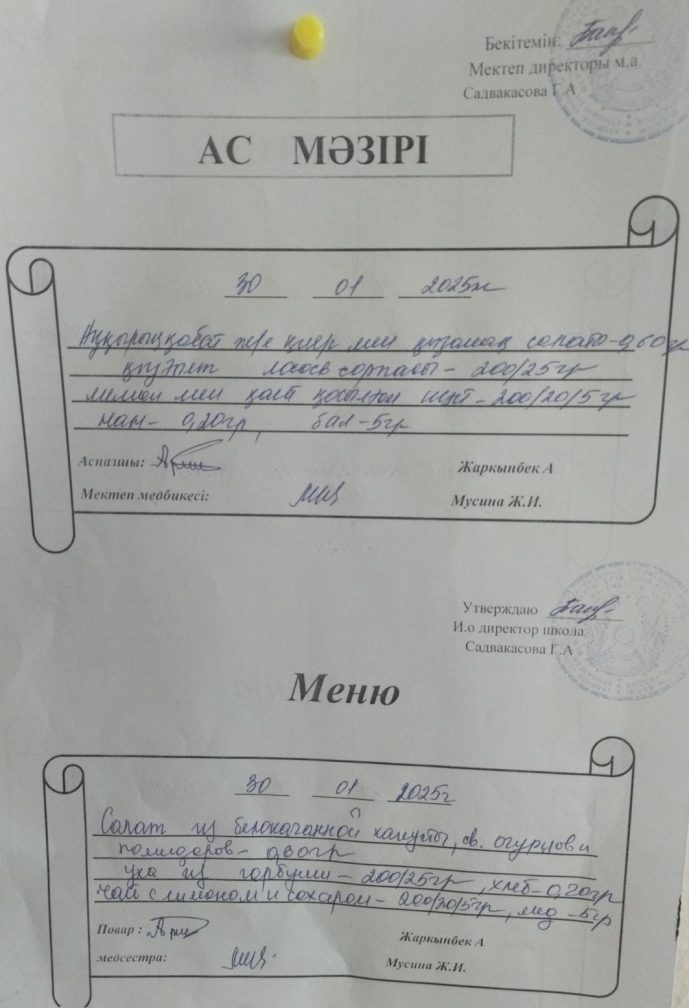 Бекітемін:
Мектеп директоры м.а
Садвакасова Г.А
АС МӘЗІРІ
30 01 2025ж
салаты-0,60гр
лосось сорпасы - 200/25гр
қант қосылған шәй - 200/20/5гр
нан - 0,20гр, бал - 5гр
Аспазшы: Жаркынбек А
Мектеп медбикесі: Мусина Ж.И.
Утверждаю
И.о директор школа
Садвакасова Г.А
Меню
30 01 2025г
Салат из белокачанной капусты, св. огурцов и
помидоров - 0,60гр
Уха из горбуши - 200/25гр, хлеб - 0,20гр
Чай с лимоном и сахаром - 200/20/5гр, мед - 5гр
Повар : Жаркынбек А
медсестра: Мусина Ж.И.